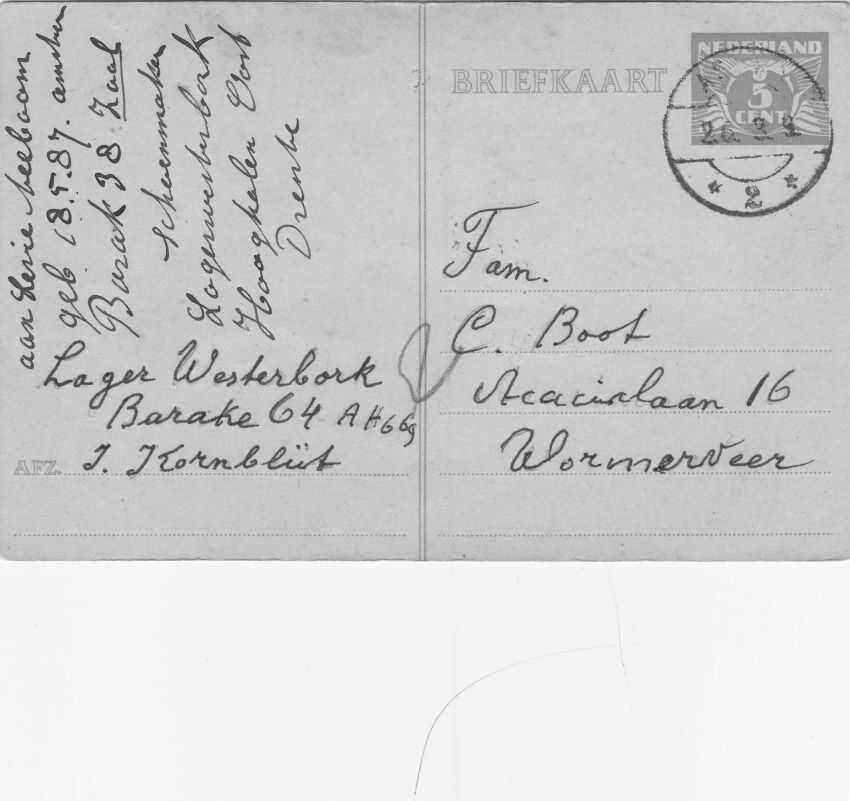 NEDERLAND
5
CENT
BRIEFKAART
Fam.
C. Boot
Acacialaan 16
Wormerveer
aan Levie Beeboom
geb. 18.5.87. Amster
Barak 38 Zaal
Schoenmaker
Lagerwesterbork
Hooghalen Oost
Drente
Lager Westerbork
Barake 64 AH669
AFZ. I. Kornblüt